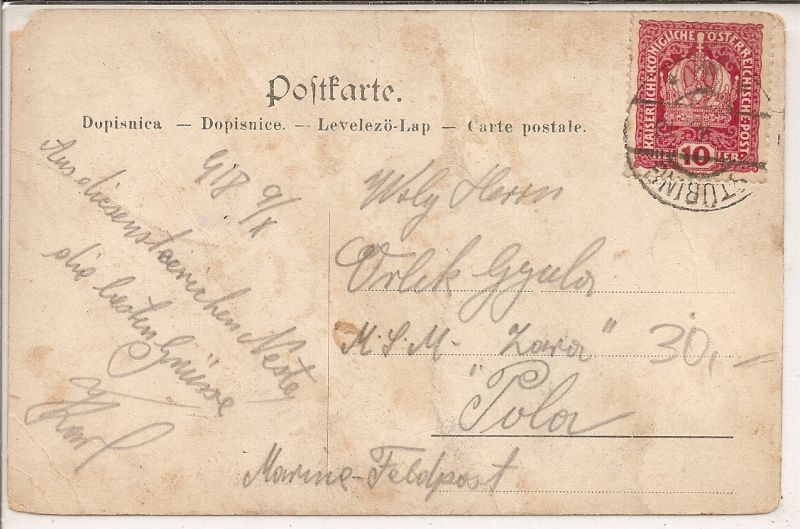 Postkarte.
Dopisnica — Dopisnice. — Levelező-Lap — Carte postale.
KAISERLICHE·KÖNIGLICHE ÖSTERREICHISCHE·POST
10
STÜBING
918 9/X
Aus diesen steirischen Neste
die besten Grüsse
Karl
Herrn
Orlik Gyula
M.S.M. "Zara" 30,-
"Pola"
Marine-Feldpost